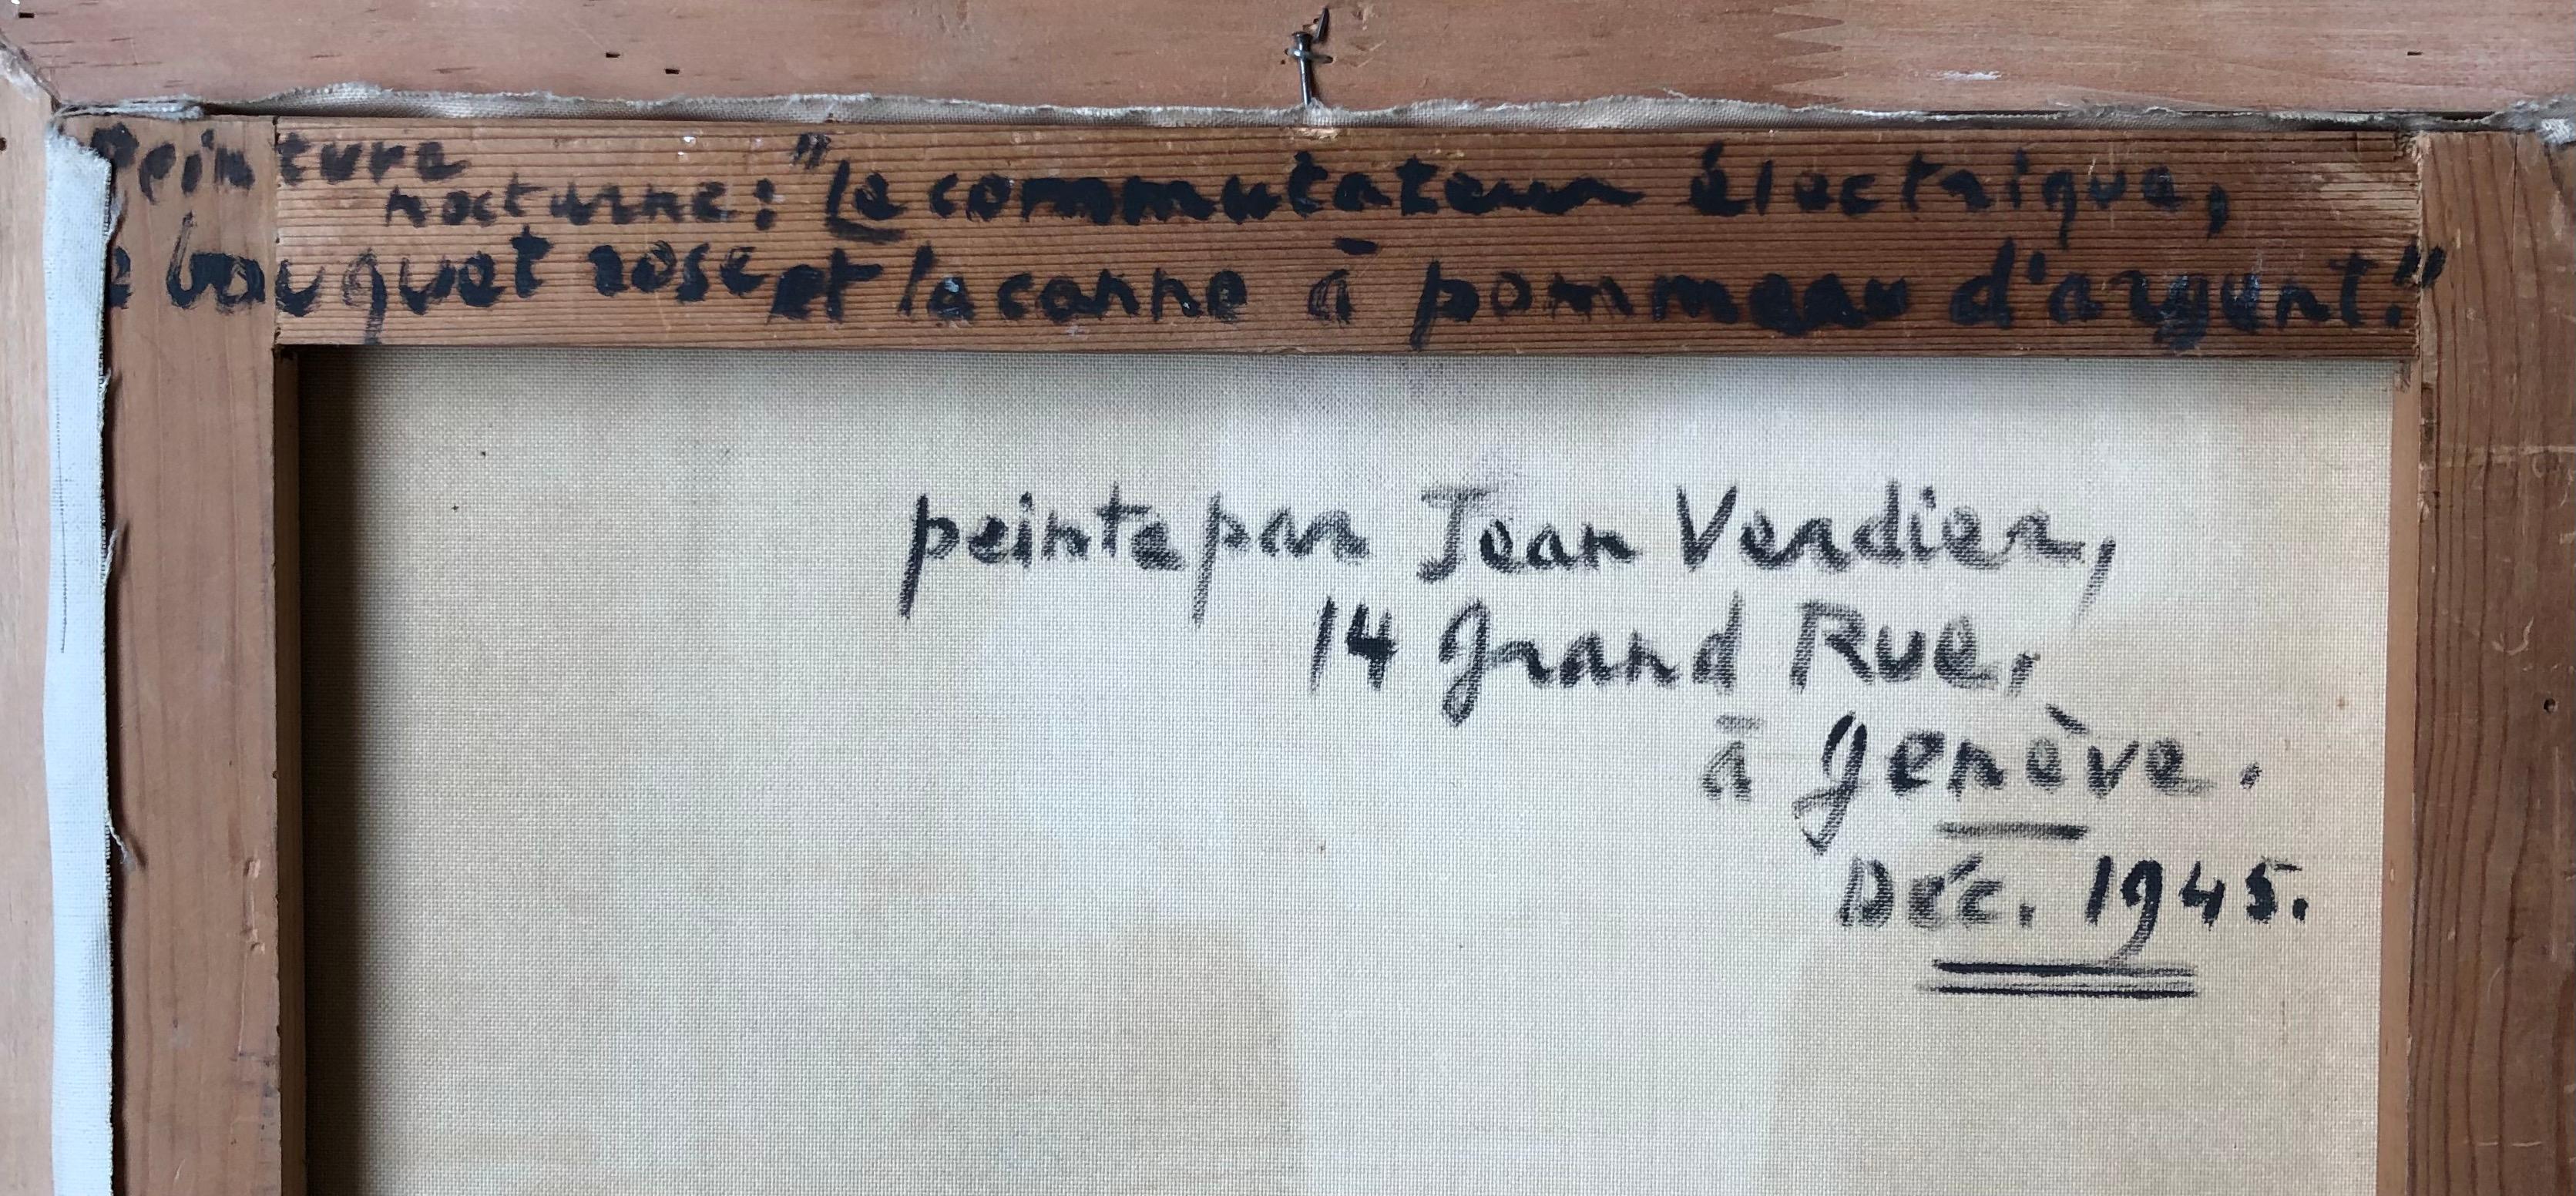 Peinture
nocturne: "Le commutateur électrique,
e bouquet rose et la canne à pommeau d'argent."
peinte par Jean Verdier,
14 Grand Rue,
à Genève.
Déc. 1945.